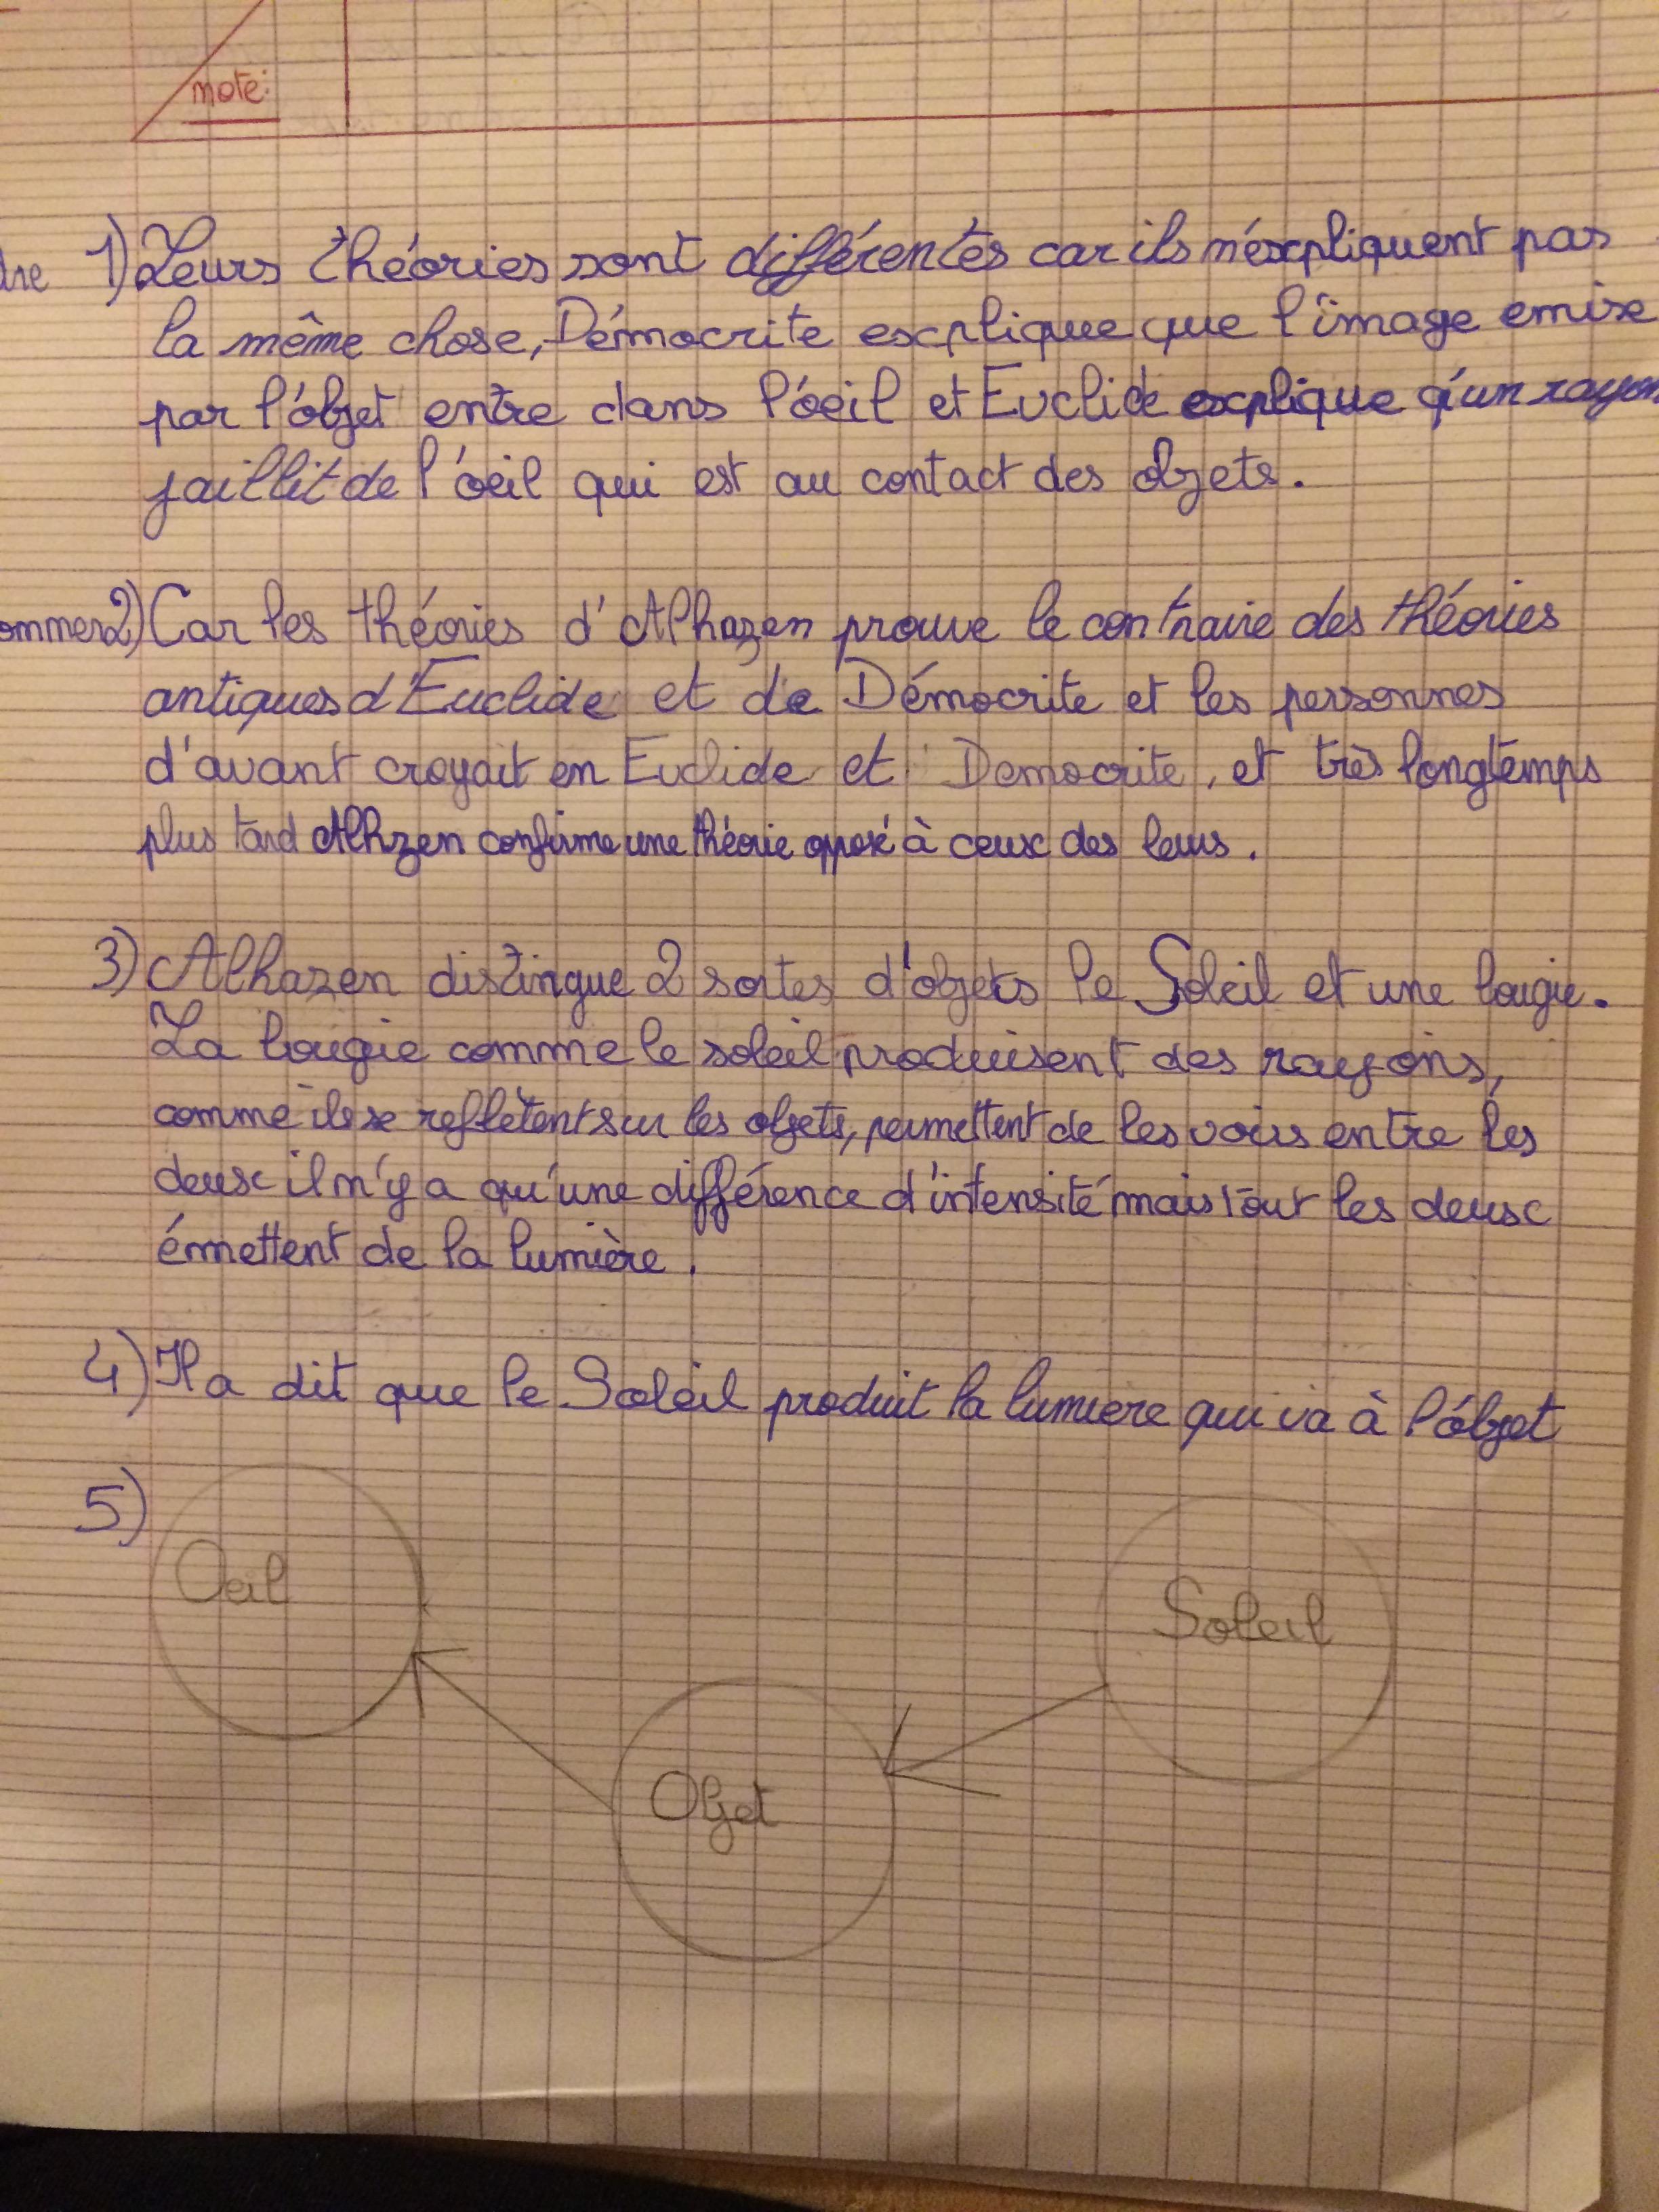 note:
1) Leurs théories sont différentes car ils n'éxpliquent pas
la même chose, Démocrite explique que l'image emise
par l'objet entre dans l'oeil et Euclide explique q'un rayon
jaillit de l'oeil qui est au contact des objets.
2) Car les théories d'Alhazen prouve le contraire des théories
antiques d'Euclide et de Démocrite et les personnes
d'avant croyait en Euclide et Democrite, et très longtemps
plus tard Alhzen confirme une théorie opposé à ceux des leurs.
3) Alhazen distingue 2 sortes d'objets le Soleil et une bougie.
La bougie comme le soleil produisent des rayons,
comme ils se reflètent sur les objets, permettent de les voir entre les
deux il n'y a qu'une différence d'intensité mais tout les deux
émettent de la lumière.
4) Il a dit que le Soleil produit la lumiere qui va à l'objet
5)
Oeil
Soleil
Objet